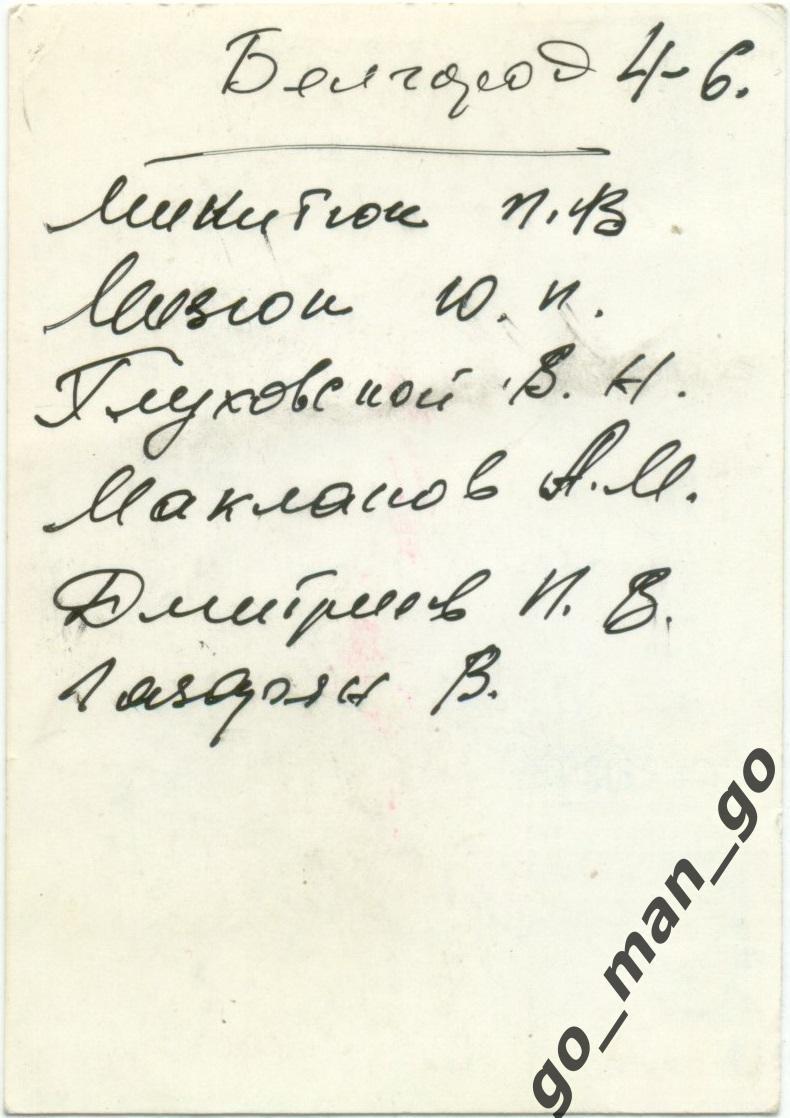 Белгород 4-6.
Микитюк П.В
Мизюк Ю.П.
Глуховской В.Н.
Маклаков А.М.
Дмитриев И.В.
Лазарян В.
go_man_go